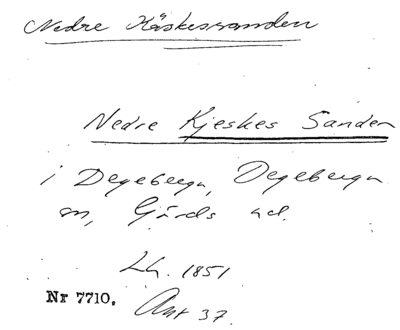 Nedre Käskessanden
Nedre Kjeskes Sanden
i Degeberga, Degeberga
sn, Gärds hd.
Lh. 1851
Nr 7710. Akt 37.